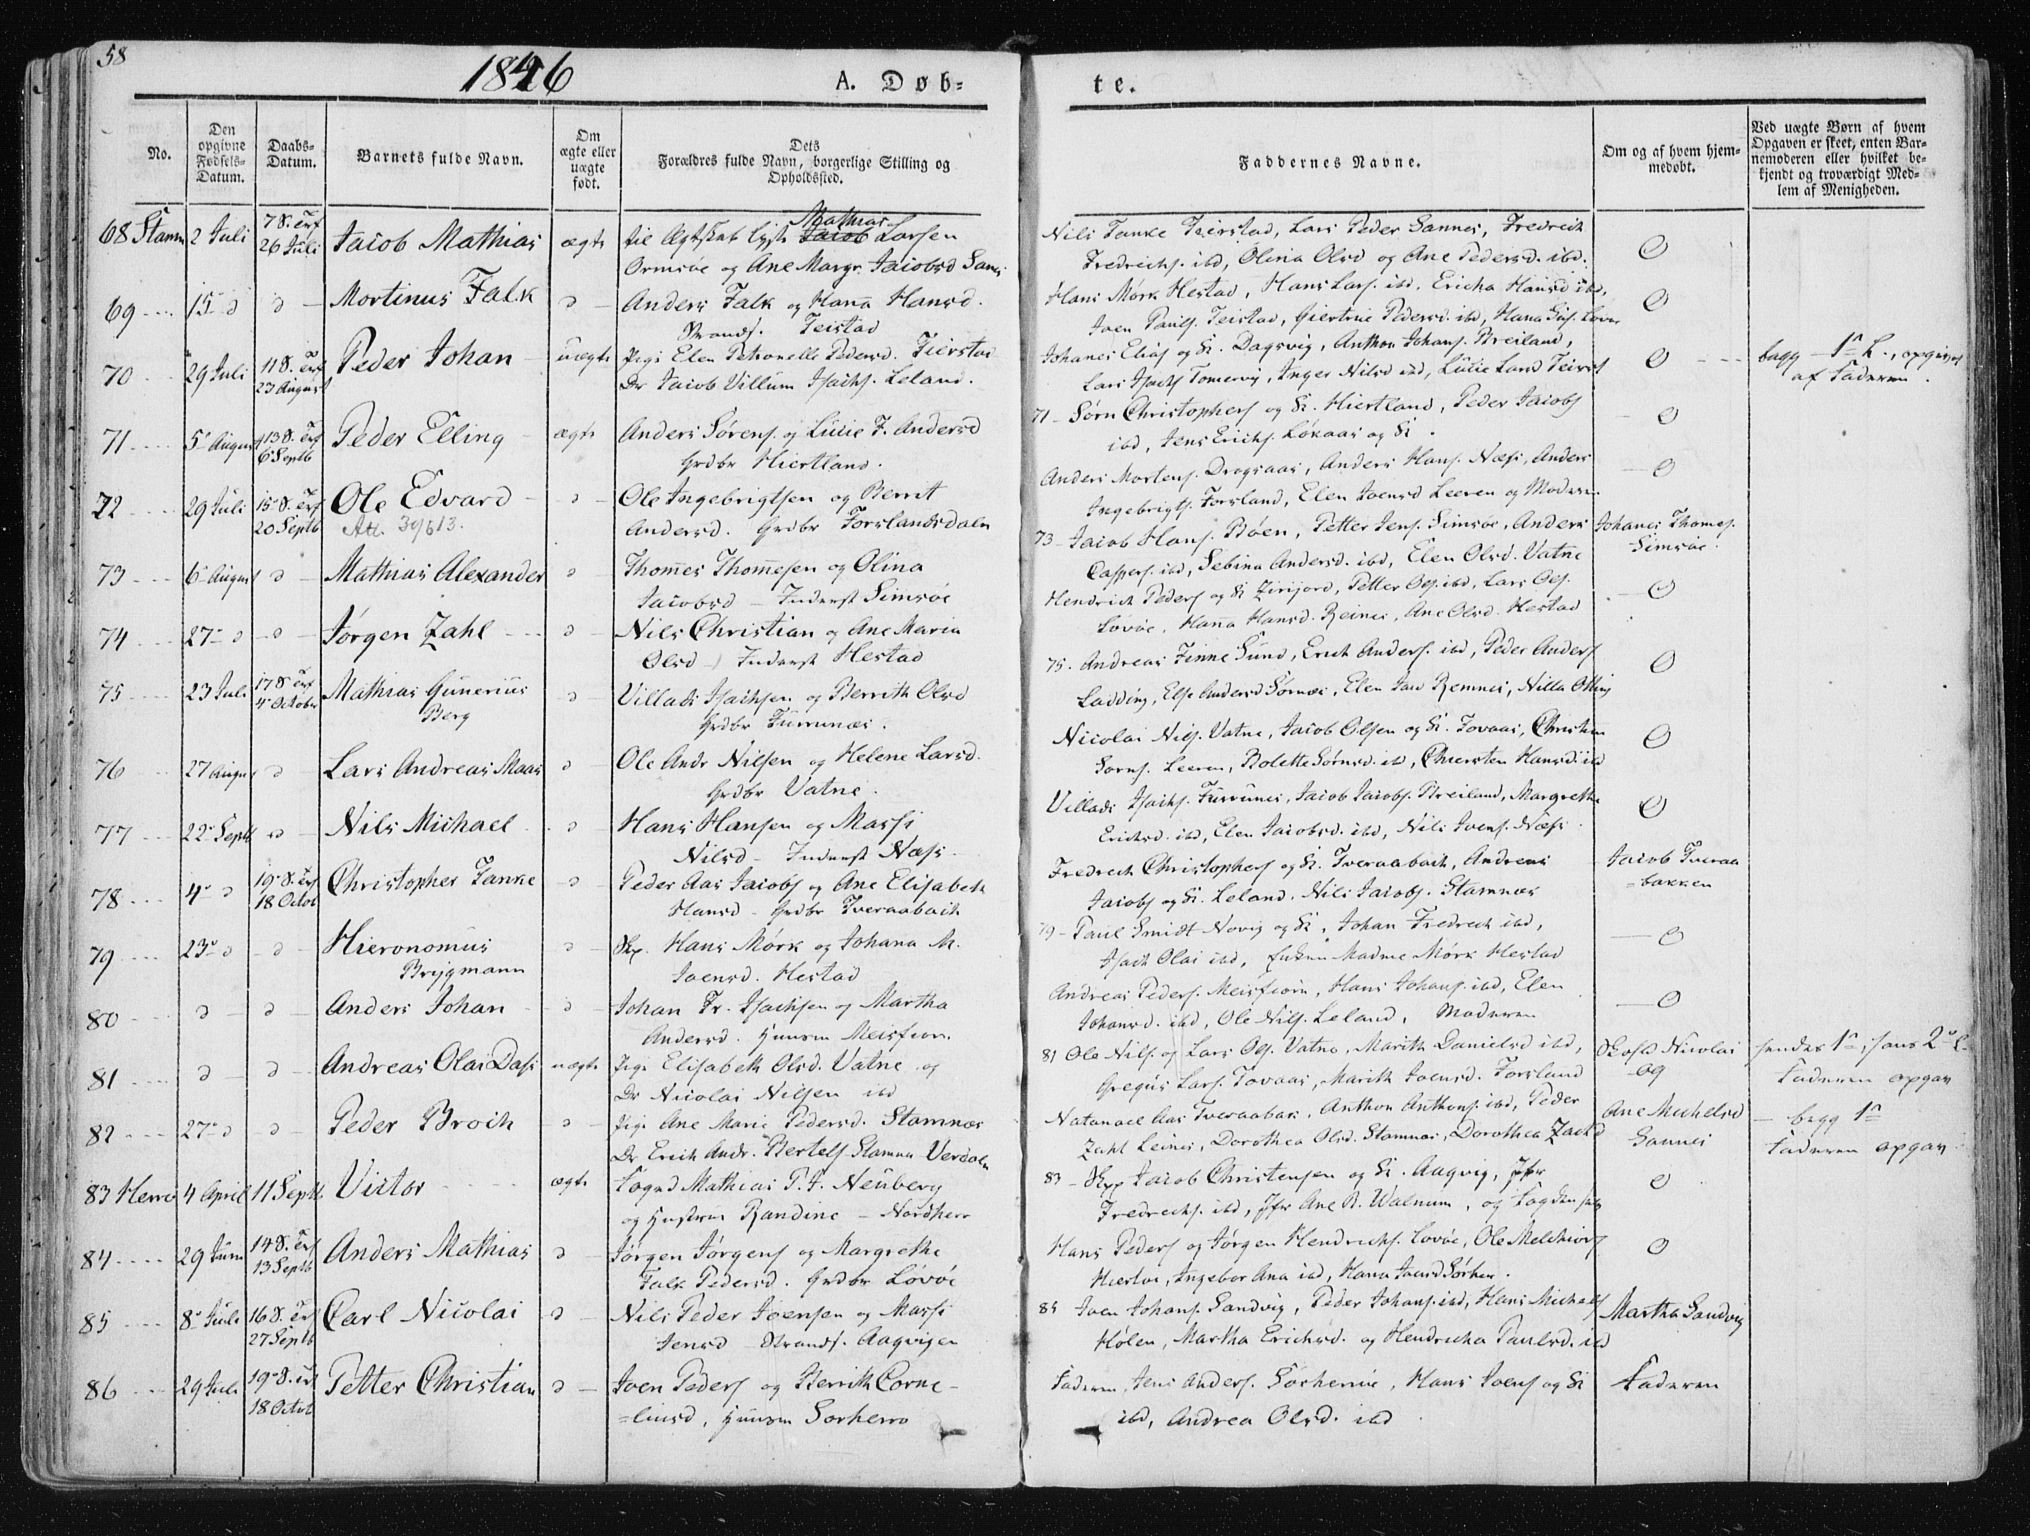 58
1846
A. Døb-
te.
No.
Den opgivne Fødsels-Datum.
Daabs-Datum.
Barnets fulde Navn.
Om ægte eller uægte født.
Dets Forældres fulde Navn, borgerlige Stilling og Opholdssted.
Faddernes Navne.
Om og af hvem hjemmedøbt.
Ved uægte Børn af hvem Opgaven er skeet, enten Barnemoderen eller hvilket bekjendt og troværdigt Medlem af Menigheden.
68 Stamn 2 Juli 7 S. Trf 26 Juli Jacob Mathias ægte til Ægteskab lyste Jacob Mathias Larsen
Ormsøe og Ane Margr. Jacobsd Sannes
Nils Tanke Teirstad, Lars Peder Sannes, Fredrich
Fredrichs. ibd, Olina Olsd og Ane Pedersd. ibd. O
69 15 d d Mortinus Falk d Anders Falk og Hana Hansd.
Strands. Teistad
Hans Mørk Hestad, Hans Lars. ibd, Ericha Hansd ibd,
Joen Pauls. Teistad, Giertrue Pedersd. ibd, Hana O
70 29 Juli 11 S. Trf 23 August Peder Johan uægte Pige Elen Petronelle Pedersd. Teirstad
Dr Jacob Villum Isachs. Leland.
Johanes Elias og K. Dagsvig, Anthon Johans. Breiland,
Lars Isachs Tomervig, Inger Nilsd ibd, Lucie Larsd Teirst O
begg 1n L., opgivet
af Faderen.
71 5 August 13 S. Trf 6 Septb Peder Elling ægte Anders Sørens. og Lucie F. Andersd
Grdbr Hiertland.
71 - Sørn Christophers og K. Hiertland, Peder Jacobs
ibd, Jens Erichs. Løkaas og K. O
72 29 Juli 15 S. Trf 20 Septb Ole Edvard d Ole Ingebrigtsen og Berrit
Att. 39/613.
Andersd. Grdbr Forslandsdalen
Anders Mortens. Dragsaas, Anders Hans. Næss, Anders
Ingebrigts. Forsland, Elen Joensd Leeren og Moderen O
73 6 August d Mathias Alexander d Thomes Thomesen og Olina
Jacobsd - Inderst Simsøe
73 - Jacob Hans. Bøen, Petter Jens. Simsøe, Anders
Caspers. ibd, Sebina Andersd. ibd, Elen Olsd. Vatne
Johanes Thomes.
Simsøe.
74 27 d d Jørgen Zahl d Nils Christian og Ane Maria
Olsd - Inderst Hestad
Hendrich Peders og K Zirijord, Petter Ols. ibd, Lars Ols.
Løvøe, Hana Hansd. Reines, Ane Olsd. Hestad O
75 23 Juli 17 S. Trf 4 October Mathias Gunerius
Berg d Villads Isachsen og Berrith Olsd
Grdbr Furrunæs.
75. Andreas Finne Sund, Erich Anders. ibd, Peder Anders
Ladding, Else Andersd Sørnæs, Elen Remnes, Nilla O
76 27 August d Lars Andreas Maas d Ole Andr Nilsen og Helene Larsd.
Grdbr Vatne.
Nicolai Nils. Vatne, Jacob Olsen og K. Tovaas, Christen
Sørns. Leeren, Bolette Sørnsd. ibd, Chiersten Hansd. ibd O
77 22 Septb d Nils Michael d Hans Hansen og Massi
Nilsd - Inderst Næss.
Villads Isachs. Furrunes, Jacob Jacobs. Breiland, Margrethe
Erichsd. ibd, Elen Jacobsd. ibd, Nils Ivens. Næss. O
78 4 d 19 S. Trf 18 Octob Christopher Tanke d Peder Aas Jacobs og Ane Elisabeth
Hansd - Grdbr Tveraabach
Fredrech Christophers og K. Tveraabach, Andreas
Jacobs og K. Leland, Nils Jacobs. Stamnæs
Jacob Tveraa
=bakken
79 23 d d Hieronomus
Brygmann d Kp. Hans Mørk og Johana M.
Joensd. Hestad
79 - Paul Smidt Novig og K, Johan Fredrech ibd,
Isach Olai ibd, Enken Madme Mørk Hestad O
80 d d Anders Johan d Johan Fr. Isachsen og Martha
Andersd. Huusm Meisfiorn.
Andreas Peders. Meisfiorn, Hans Johans. ibd, Elen
Johansd. ibd, Ole Nils. Leland, Moderen O
81 d d Andreas Olai Dass uægte Pige Elisabeth Olsd. Vatne og
Dr Nicolai Nilsen ibd
81 Ole Nils. og Lars Ols. Vatne, Marith Danielsd ibd,
Gregus Lars. Tovaas, Marith Joensd. Forsland
Skosh Nicolai
og
hendes 1n, hans 2n L.
Faderen opgav
82 27 d d Peder Broch d Pige Ane Marie Pedersd. Stamnæs
Dr Erich Andr. Bertels. Stamn Verdalen
Natanael Aas Tveraabak, Anthon Anthons. ibd, Peder
Zahl Leines, Dorothea Olsd. Stamnæs, Dorothea Zachd
Ane Michelsd
Sannes
begg 1n
Faderen opgav
83 Herrø 4 April 11 Septb. Victor ægte Fogd Mathias P. J. Neuberg
og Hustrue Randine - Nordherr
83 - Skpp Jacob Christensen og K. Aagvig, Jfr
Fredrechs. ibd, Jfr Ane R. Walnum, og Fogden selv O
84 29 Juni 14 S. Trf 13 Septb Anders Mathias d Jørgen Jørgens og Margrethe
Falk Pedersd. Grdbr Løvøe
Hans Peders og Jørgen Hendrichs. Løvøe, Ole Melchiors
Hiertøe, Ingebor Ana ibd, Hana Joensd Sørher. O
85 8 Juli 16 S. Trf 27 Septb Carl Nicolai d Nils Peder Joensen og Massi
Jensd - Strands. Aagvigen
85 Joen Johans. Sandvig, Peder Johans. ibd, Hans Michaels
Hølen, Martha Erichsd. og Hendricha Paulsd. ibd
Martha Sandvig
86 29 Juli 19 S. Trf 18 Octbr Petter Christian d Joen Peders og Berrith Corne-
=liusd, Huusm Sørherrø
Faderen, Jens Anders. Sørherrøe, Hans Joens og K
ibd, Andrea Olsd. ibd
Faderen